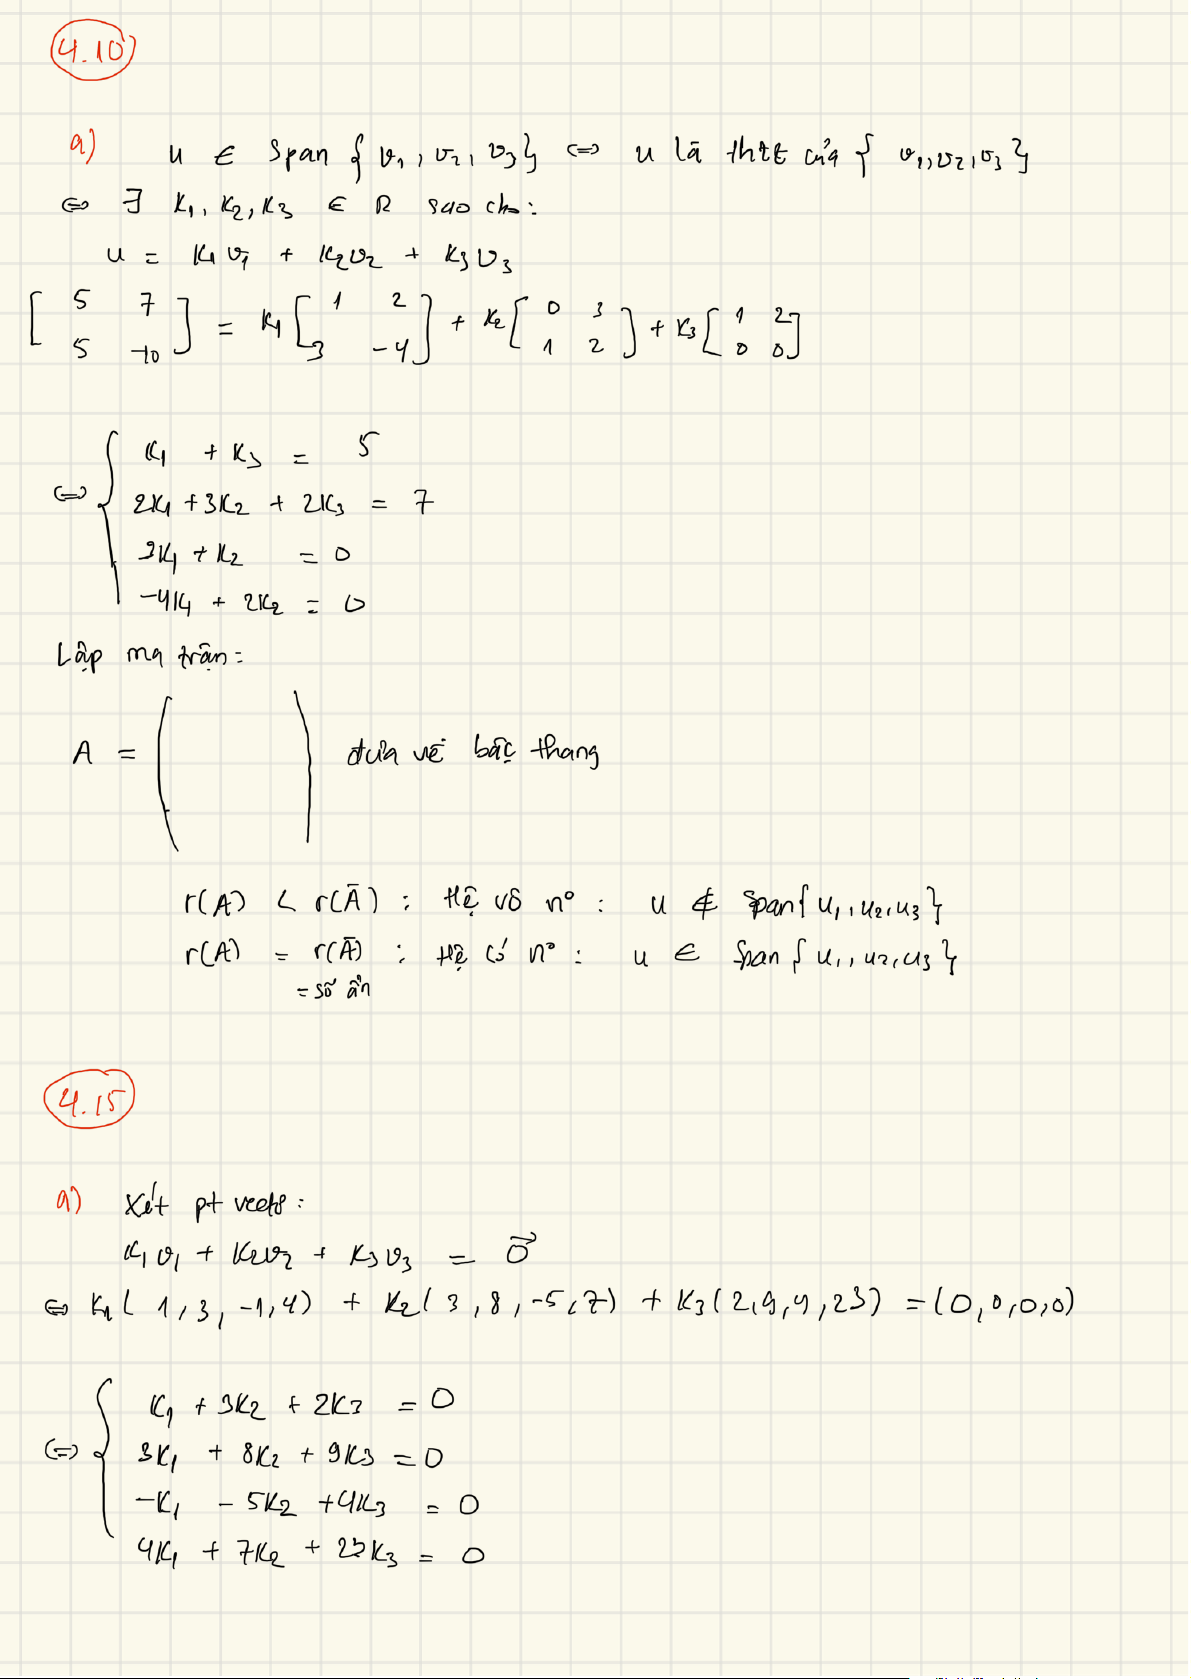 4.10
a) u ∈ Span { v1, v2, v3} ⇔ u là thtt của { v1, v2, v3}
⇔ ∃ k1, k2, k3 ∈ R sao cho:
u = k1 v1 + k2 v2 + k3 v3
[ 5 7 ; 5 -10 ] = k1 [ 1 2 ; 3 -4 ] + k2 [ 0 3 ; 1 2 ] + k3 [ 1 2 ; 0 0 ]
k1 + k3 = 5
⇔ { 2k1 + 3k2 + 2k3 = 7
3k1 + k2 = 0
-4k1 + 2k2 = 0
Lập ma trận:
A = ( ) đưa về bậc thang
r(A) < r(Ā) : Hệ vô n° : u ∉ Span{ u1, u2, u3 }
r(A) = r(Ā) : Hệ có n° : u ∈ Span { u1, u2, u3 }
= số ẩn
4.15
a) Xét pt vectơ :
k1 v1 + k2 v2 + k3 v3 = 0⃗
⇔ k1 ( 1, 3, -1, 4) + k2 ( 3, 8, -5, 7) + k3 ( 2, 9, 4, 23) = (0, 0, 0, 0)
k1 + 3k2 + 2k3 = 0
⇔ { 3k1 + 8k2 + 9k3 = 0
-k1 - 5k2 + 4k3 = 0
4k1 + 7k2 + 23k3 = 0